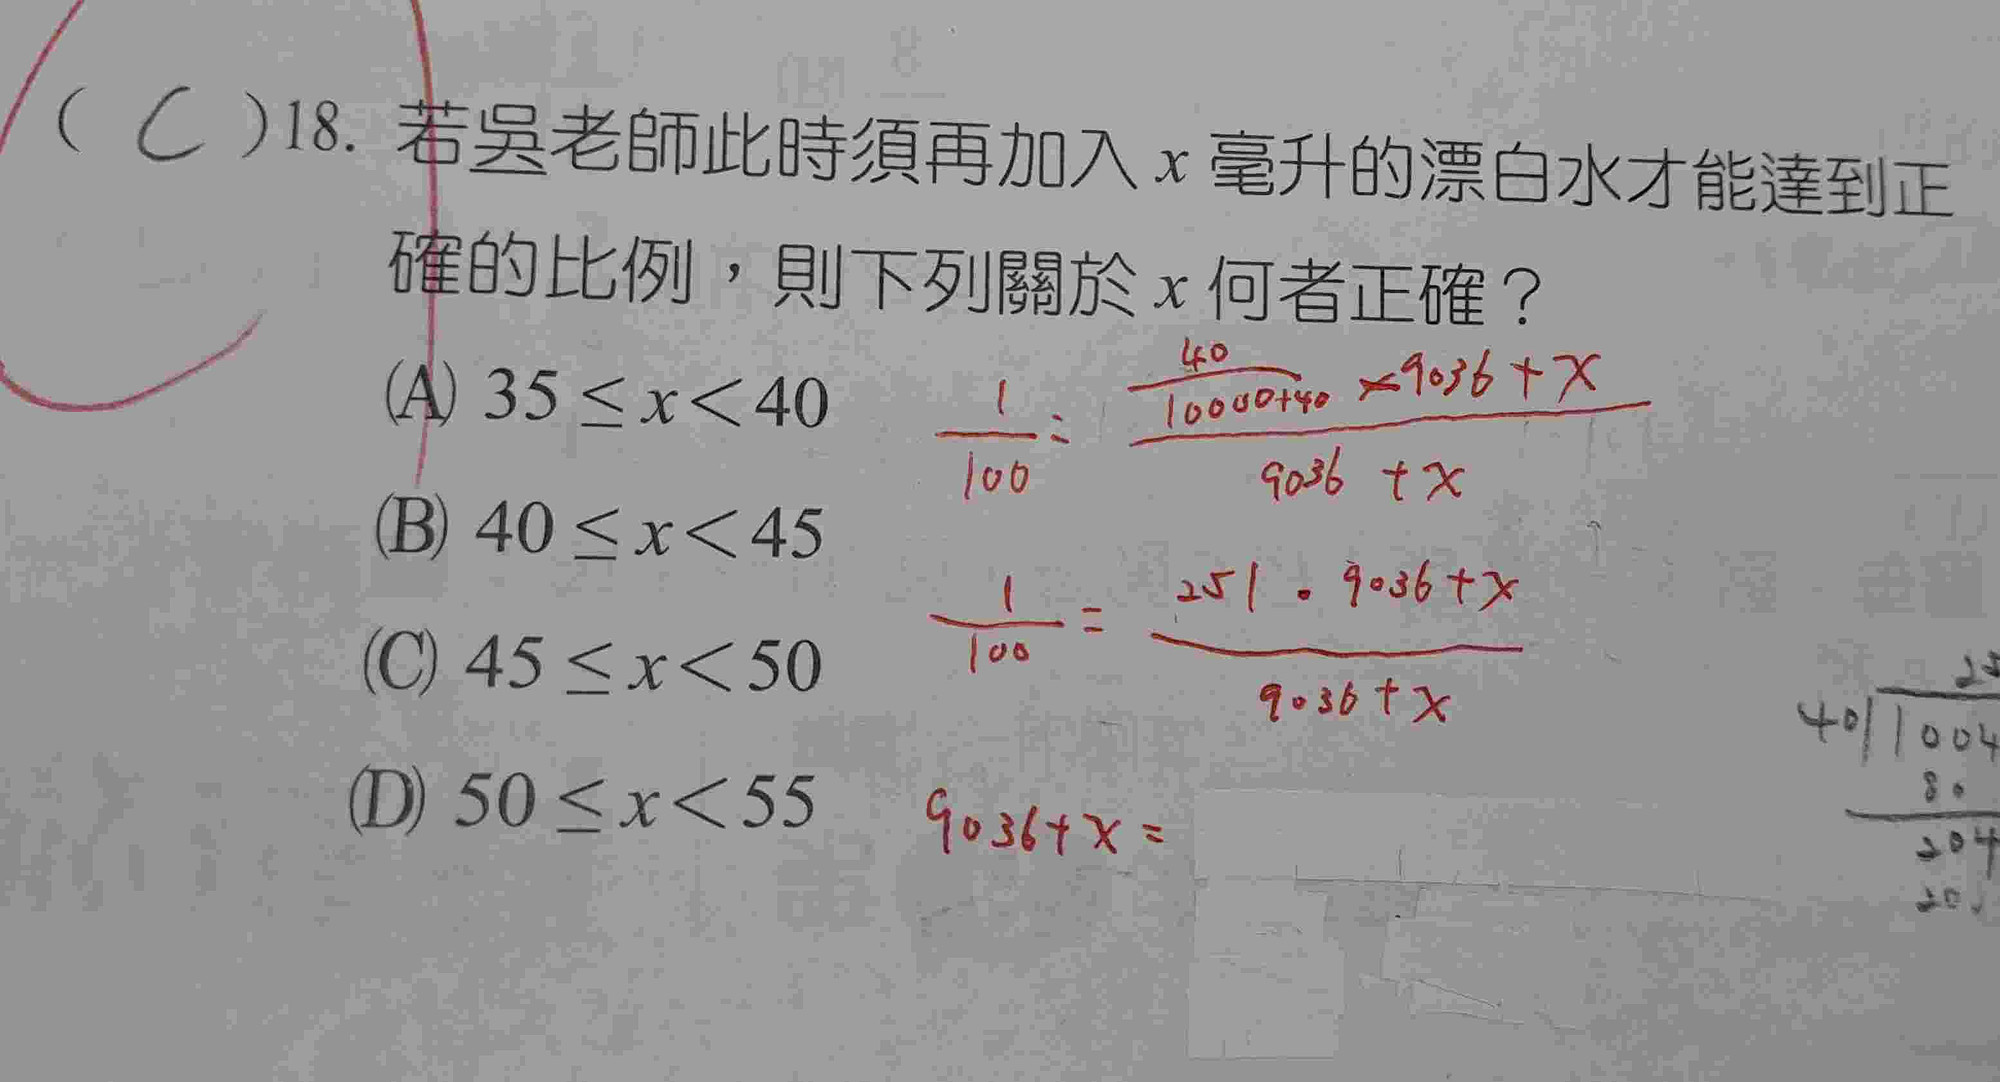 ( C )18. 若吳老師此時須再加入 x 毫升的漂白水才能達到正
確的比例，則下列關於 x 何者正確？
(A) 35 ≤ x < 40
(B) 40 ≤ x < 45
(C) 45 ≤ x < 50
(D) 50 ≤ x < 55
1/100 = (40/(10000+40) × 9036 + x)/(9036 + x)
1/100 = (251 . 9036 + x)/(9036 + x)
9036 + x =
25
40 1004
80
204
20